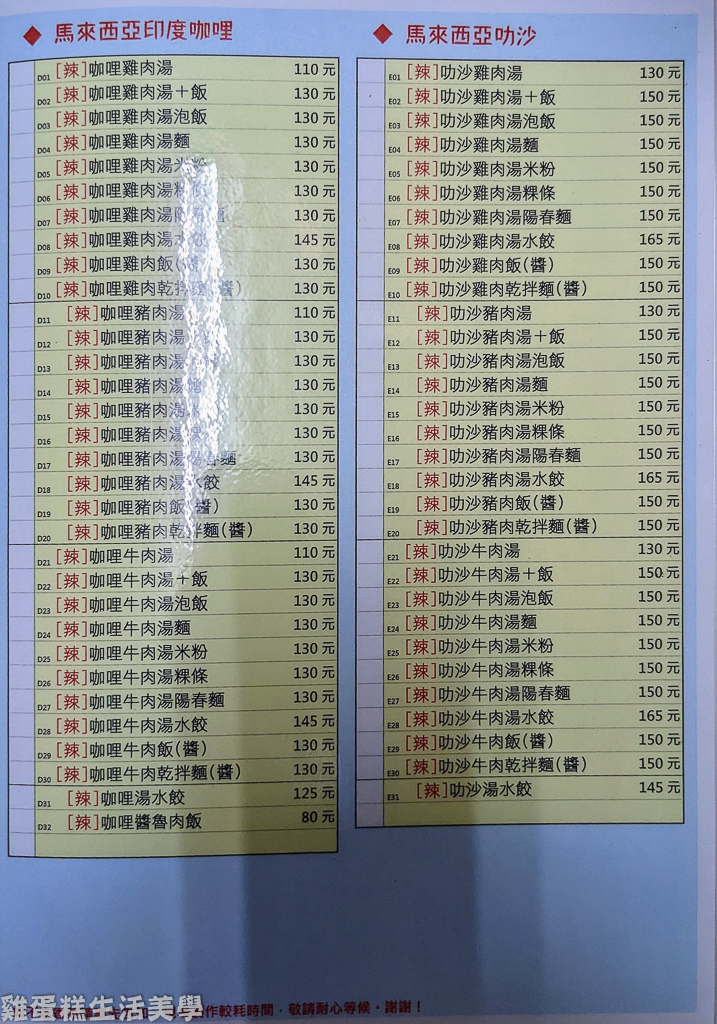 ◆ 馬來西亞印度咖哩
D01 [辣]咖哩雞肉湯 110元
D02 [辣]咖哩雞肉湯＋飯 130元
D03 [辣]咖哩雞肉湯泡飯 130元
D04 [辣]咖哩雞肉湯麵 130元
D05 [辣]咖哩雞肉湯米粉 130元
D06 [辣]咖哩雞肉湯粿 130元
D07 [辣]咖哩雞肉湯陽 麵 130元
D08 [辣]咖哩雞肉湯水 145元
D09 [辣]咖哩雞肉飯(醬) 130元
D10 [辣]咖哩雞肉乾拌麵(醬) 130元
D11 [辣]咖哩豬肉湯 110元
D12 [辣]咖哩豬肉湯 130元
D13 [辣]咖哩豬肉湯 130元
D14 [辣]咖哩豬肉湯 130元
D15 [辣]咖哩豬肉湯 130元
D16 [辣]咖哩豬肉湯 130元
D17 [辣]咖哩豬肉湯陽春麵 130元
D18 [辣]咖哩豬肉湯水餃 145元
D19 [辣]咖哩豬肉飯(醬) 130元
D20 [辣]咖哩豬肉乾拌麵(醬) 130元
D21 [辣]咖哩牛肉湯 110元
D22 [辣]咖哩牛肉湯＋飯 130元
D23 [辣]咖哩牛肉湯泡飯 130元
D24 [辣]咖哩牛肉湯麵 130元
D25 [辣]咖哩牛肉湯米粉 130元
D26 [辣]咖哩牛肉湯粿條 130元
D27 [辣]咖哩牛肉湯陽春麵 130元
D28 [辣]咖哩牛肉湯水餃 145元
D29 [辣]咖哩牛肉飯(醬) 130元
D30 [辣]咖哩牛肉乾拌麵(醬) 130元
D31 [辣]咖哩湯水餃 125元
D32 [辣]咖哩醬魯肉飯 80元
◆ 馬來西亞叻沙
E01 [辣]叻沙雞肉湯 130元
E02 [辣]叻沙雞肉湯＋飯 150元
E03 [辣]叻沙雞肉湯泡飯 150元
E04 [辣]叻沙雞肉湯麵 150元
E05 [辣]叻沙雞肉湯米粉 150元
E06 [辣]叻沙雞肉湯粿條 150元
E07 [辣]叻沙雞肉湯陽春麵 150元
E08 [辣]叻沙雞肉湯水餃 165元
E09 [辣]叻沙雞肉飯(醬) 150元
E10 [辣]叻沙雞肉乾拌麵(醬) 150元
E11 [辣]叻沙豬肉湯 130元
E12 [辣]叻沙豬肉湯＋飯 150元
E13 [辣]叻沙豬肉湯泡飯 150元
E14 [辣]叻沙豬肉湯麵 150元
E15 [辣]叻沙豬肉湯米粉 150元
E16 [辣]叻沙豬肉湯粿條 150元
E17 [辣]叻沙豬肉湯陽春麵 150元
E18 [辣]叻沙豬肉湯水餃 165元
E19 [辣]叻沙豬肉飯(醬) 150元
E20 [辣]叻沙豬肉乾拌麵(醬) 150元
E21 [辣]叻沙牛肉湯 130元
E22 [辣]叻沙牛肉湯＋飯 150元
E23 [辣]叻沙牛肉湯泡飯 150元
E24 [辣]叻沙牛肉湯麵 150元
E25 [辣]叻沙牛肉湯米粉 150元
E26 [辣]叻沙牛肉湯粿條 150元
E27 [辣]叻沙牛肉湯陽春麵 150元
E28 [辣]叻沙牛肉湯水餃 165元
E29 [辣]叻沙牛肉飯(醬) 150元
E30 [辣]叻沙牛肉乾拌麵(醬) 150元
E31 [辣]叻沙湯水餃 145元
作較耗時間．敬請耐心等候．謝謝！
雞蛋糕生活美學